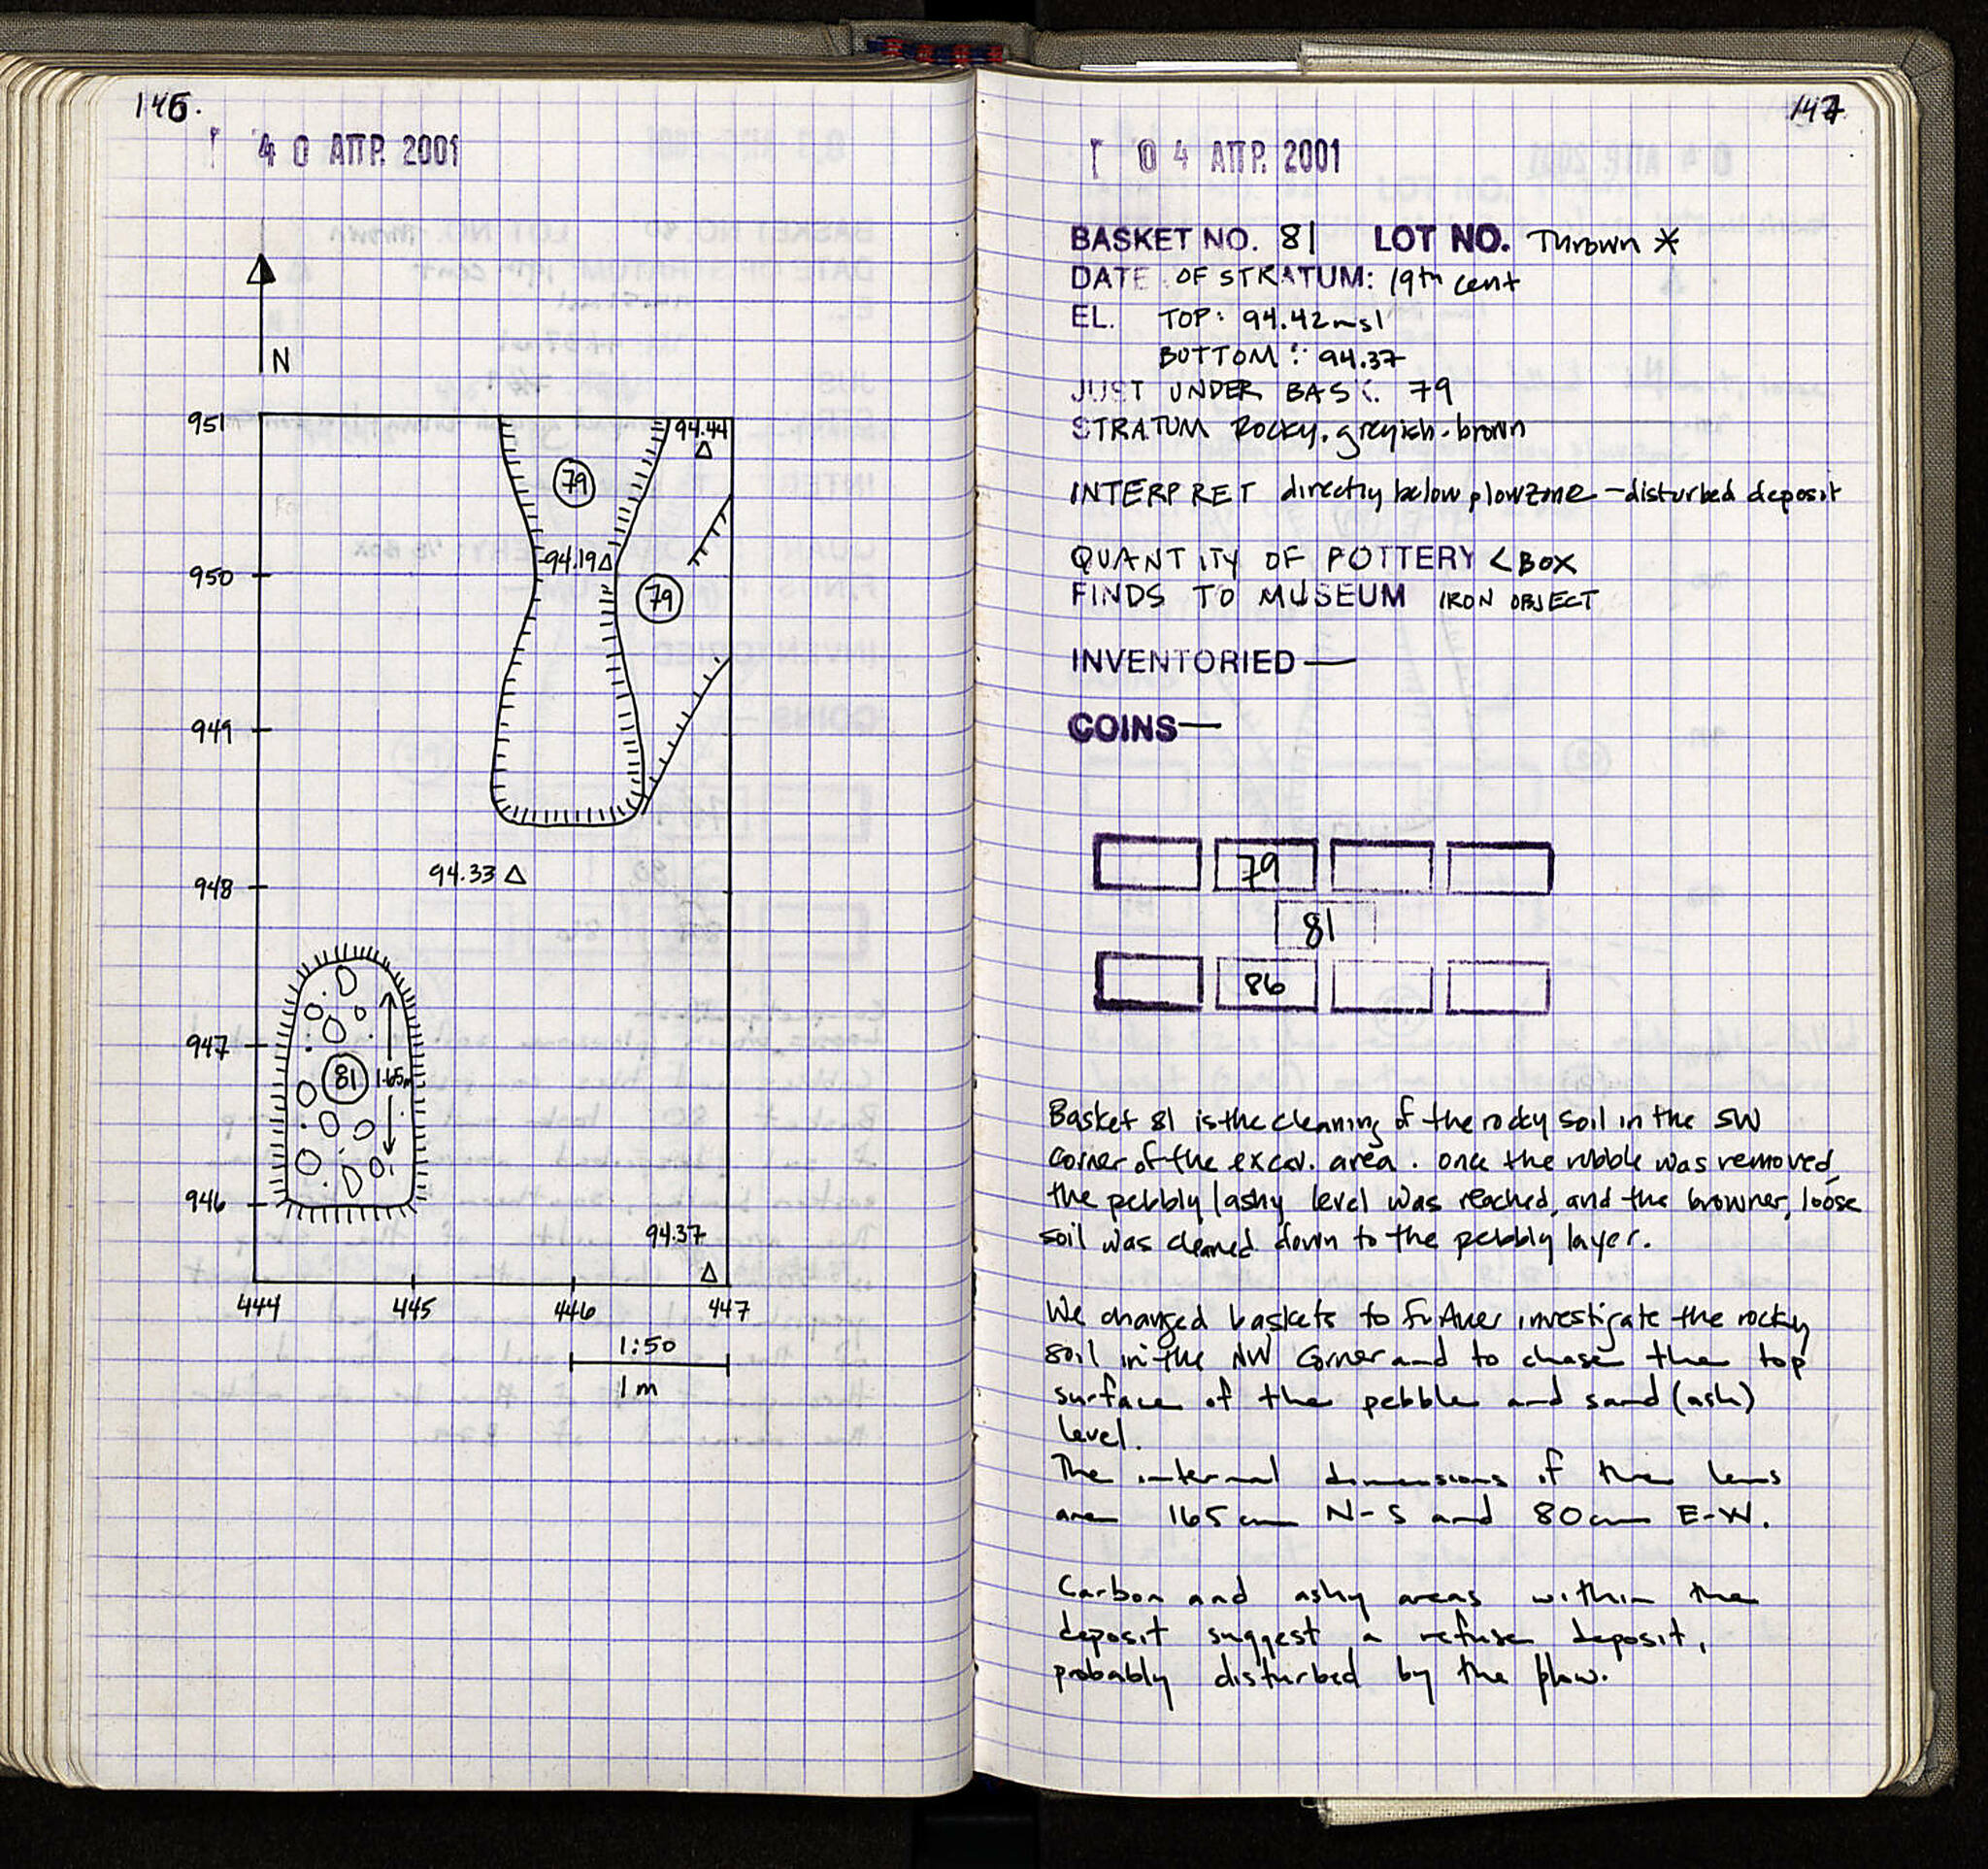 146.
4 0 ΑΠΡ. 2001
N
951
94.44
79
94.19
950
79
949
94.33
948
947
81
1.65m
946
94.37
444 445 446 447
1:50
1 m
147
0 4 ΑΠΡ. 2001
BASKET NO. 81 LOT NO. Thrown *
DATE OF STRATUM: 19th cent
EL. TOP: 94.42msl
BOTTOM: 94.37
JUST UNDER BASK. 79
STRATUM Rocky, greyish-brown
INTERPRET directly below plowzone - disturbed deposit
QUANTITY OF POTTERY < BOX
FINDS TO MUSEUM IRON OBJECT
INVENTORIED —
COINS —
79
81
86
Basket 81 is the cleaning of the rocky soil in the SW
corner of the excav. area. once the rubble was removed,
the pebbly/ashy level was reached, and the browner, loose
soil was cleaned down to the pebbly layer.
We changed baskets to further investigate the rocky
soil in the NW corner and to chase the top
surface of the pebble and sand (ash)
level.
The internal dimensions of the lens
are 165 cm N-S and 80 cm E-W.
Carbon and ashy areas within the
deposit suggest a refuse deposit,
probably disturbed by the plow.